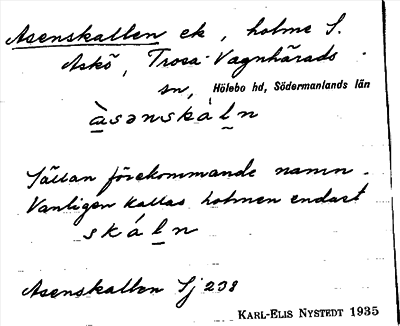 Asenskallen ek, holme S.
Askö, Trosa-Vagnhärads
sn, Hölebo hd, Södermanlands län
ȧ̱sənskàḻn
Sällan förekommande namn.
Vanligen kallas holmen endast
skáḻn
Asenskallen Sj 208
KARL-ELIS NYSTEDT 1935